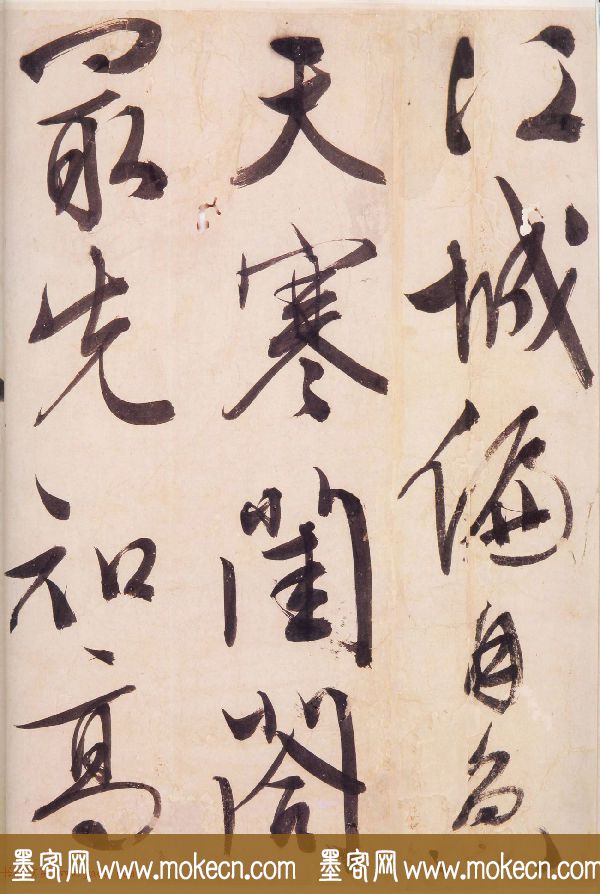 江城偏自
天寒閨閣
冣先知高
墨客网 www.mokecn.com 墨客网 www.mokecn.com